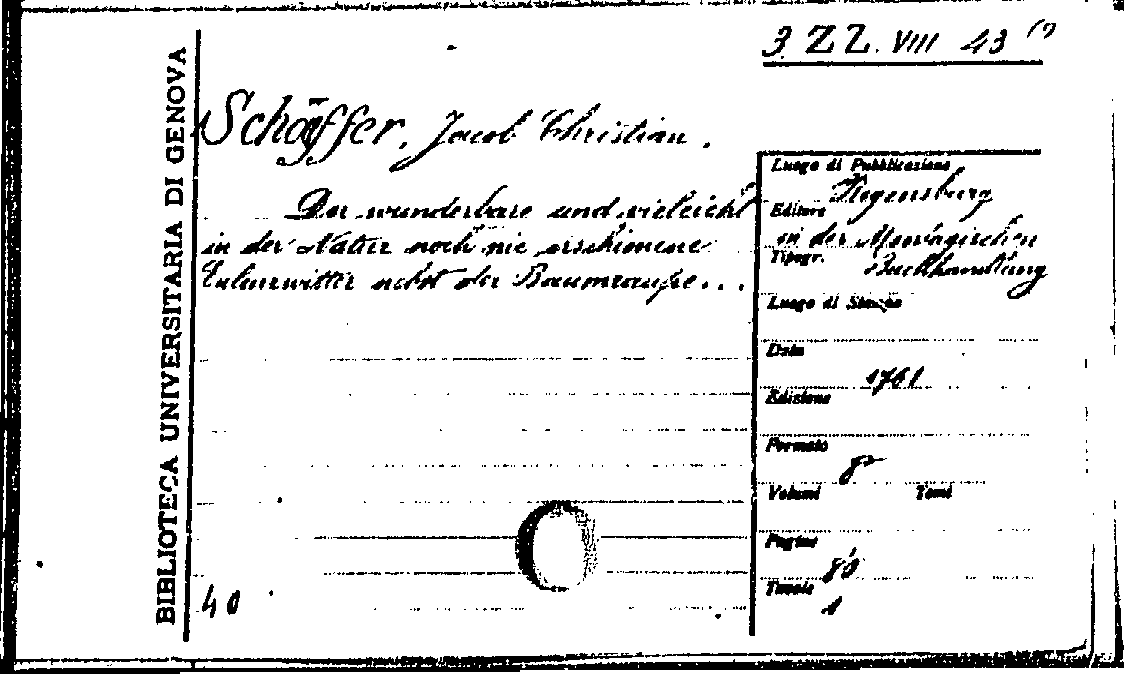 3. ZZ. VIII 43 (7)
BIBLIOTECA UNIVERSITARIA DI GENOVA
Schäffer, Jacob Christian.
Der wunderbare und vieleicht
in der Natur noch nie erschienene
Eulenzwitter nebst der Baumraupe...
Luogo di Pubblicazione
Regensburg
Editore
in der Montagischen
Tipogr.
Buchhandlung
Luogo di Stampa
Data
1761
Edizione
Formato
8º
Volumi Tomi
Pagine
Tavole
1
40